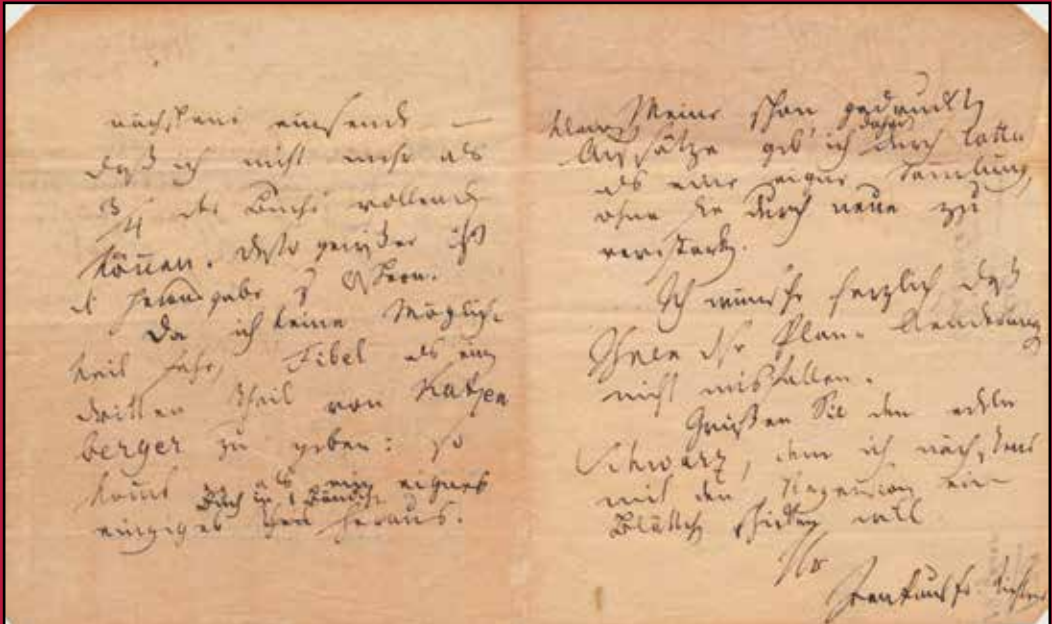 nächstens einsende —
daß ich nicht mehr als
3/4 des Buchs vollende
können. Desto gewisser ist
d. Herausgabe Ostern.
Da ich keine Möglich-
keit sehe, Fibel als ein
dritten Theil von Katzen
berger zu geben: so
komt als ein eignes
Buch in 1 Bändch.
einziges heraus.
Meine schon gedruckten
kleinen
Aufsätze geb' ich daher durch Cotta
als eine eigne Samlung,
ohne sie durch neue zu
verstärken.
Ich wünsche herzlich daß
Ihnen die Plan-Aenderung
nicht misfallen.
Grüßen Sie den edeln
Schwarz, dem ich nächstens
mit den Rezension ein
Blättch schicken will
Ihr
Jean Paul Fr. Richter